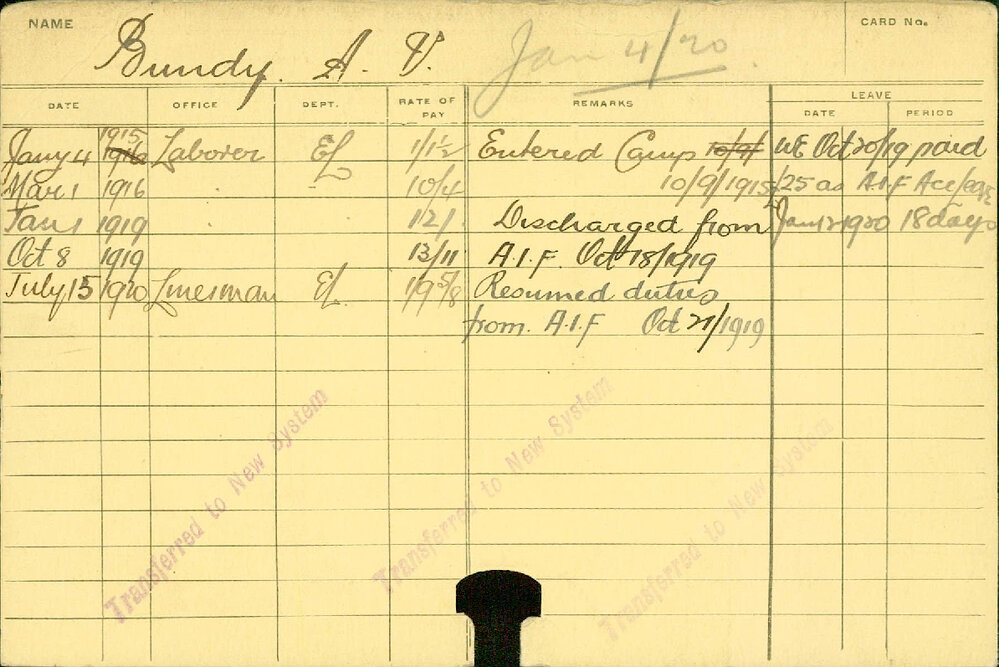 NAME Bundy. A. V. Jan 4/20 CARD No.
DATE OFFICE DEPT. RATE OF PAY REMARKS LEAVE DATE PERIOD
Jany 4 1915 Laborer EL 1/1½ Entered Camp WE Oct 20/19 paid
Mar 1 1916 10/4 10/9/1915 £25 as A.I.F
Jan 1 1919 12/ Discharged from Jan 12 1920 18 days
Oct 8 1919 13/11 A.I.F. Oct 18/1919
July 15 1920 Linesman EL Resumed duties
from A.I.F Oct 21/1919
Transferred to New System
Transferred to New System
Transferred to New System